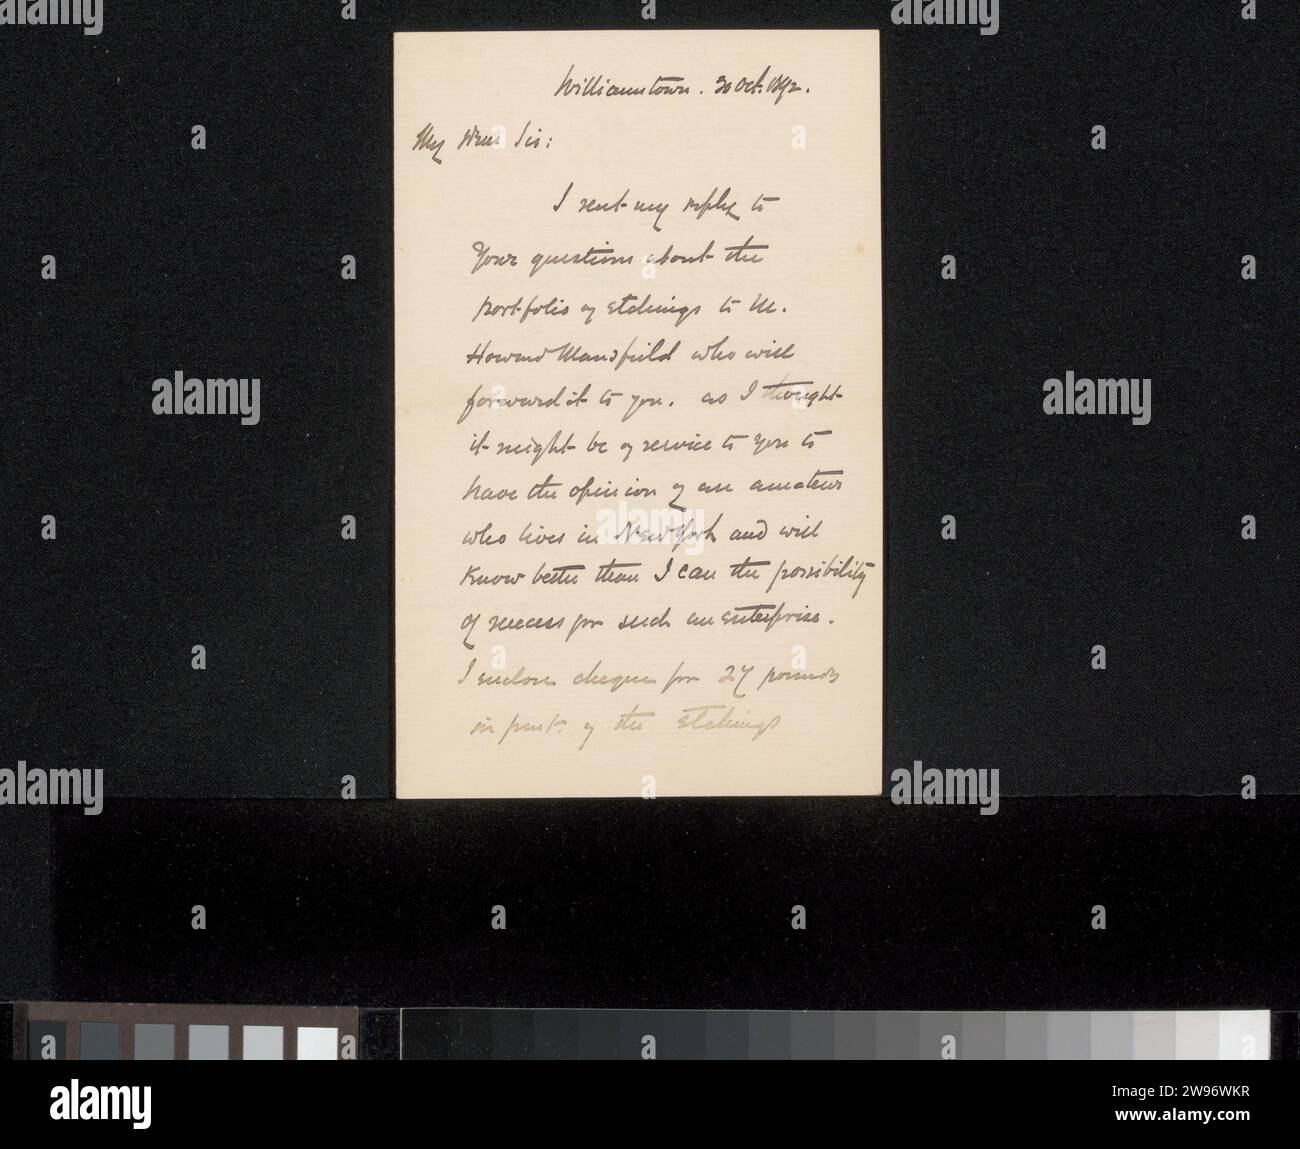 Williamstown. 30 Oct. 1892.
My Dear Sir:
I sent my reply to
your questions about the
portfolio of Etchings to M.
Howard Mansfield who will
forward it to you. as I thought
it might be of service to you to
have the opinion of an amateur
who lives in New York and will
know better than I can the possibility
of success for such an enterprise.
I enclose cheque for 27 pounds
in part of the Etchings
alamy
Image ID: 2W96WKR
www.alamy.com